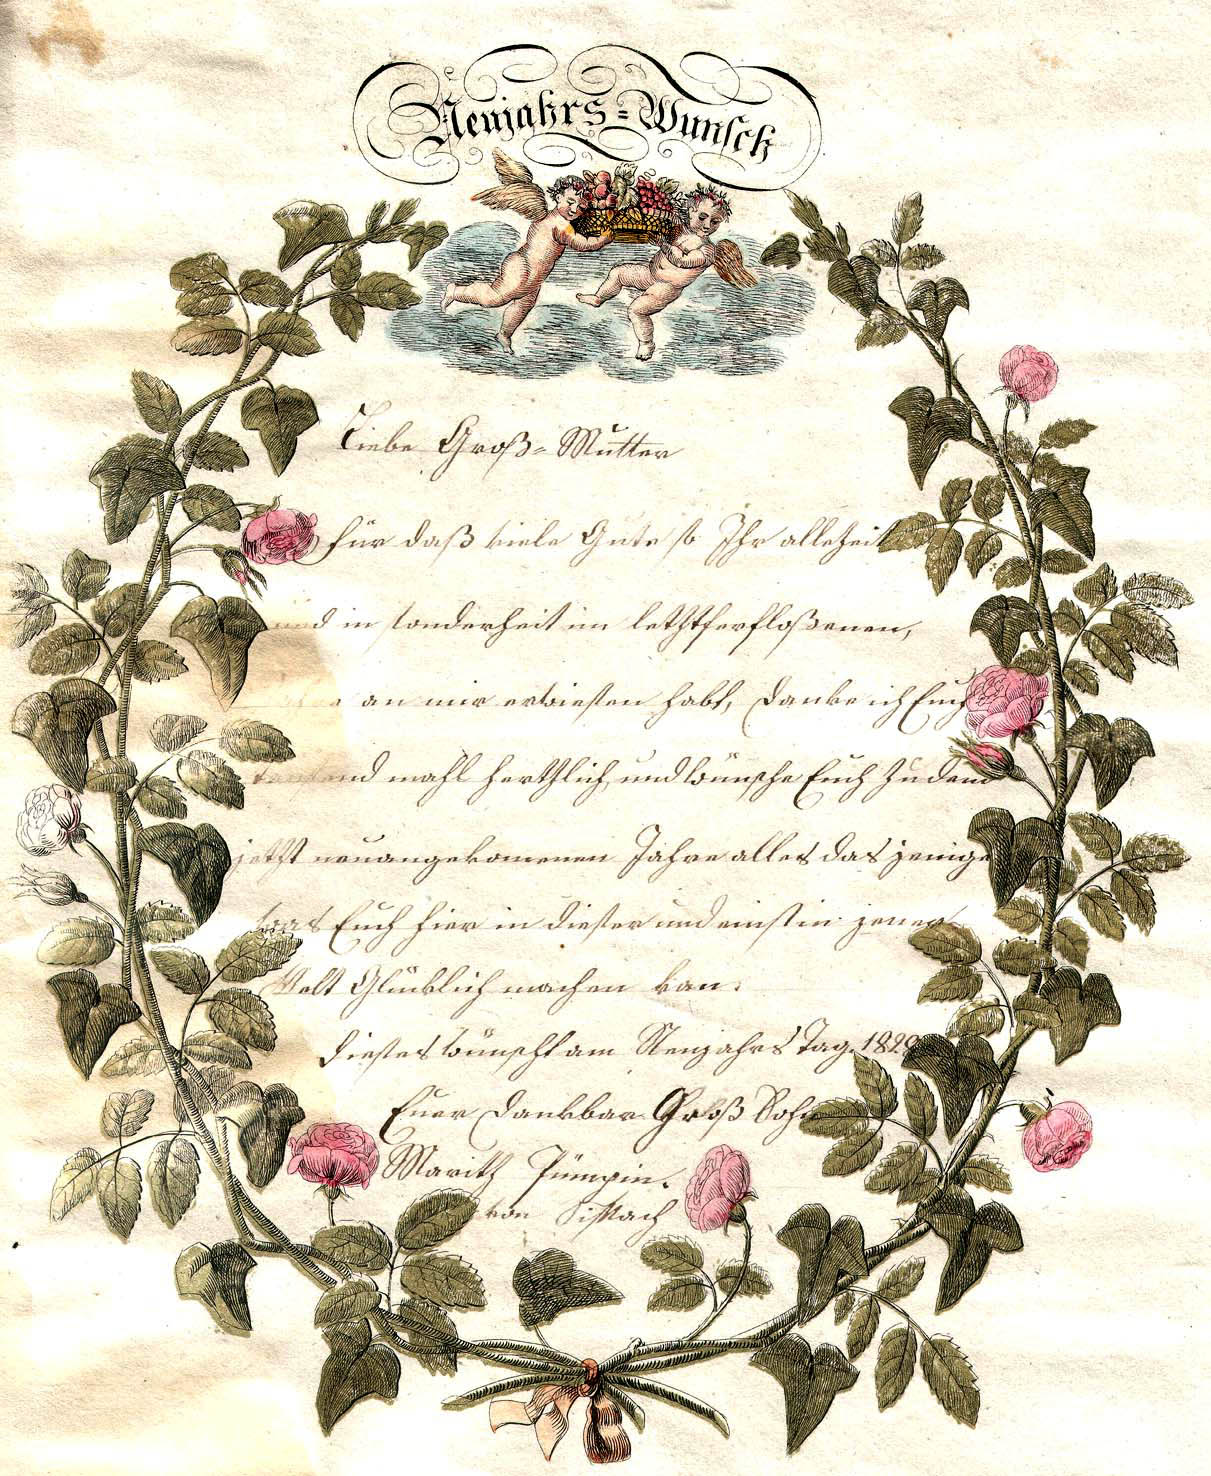 Neujahrs=Wunsch
Liebe Groß=Mutter
für daß viele Gute so Ihr allezeit
und in sonderheit im letztferfloßenen,
an mir erwiesen habt, danke ich Euch
tausend mahl hertzlich, und wünsche Euch zu dem
jetzt neuangekomenen Jahre alles das jenige
was Euch hier in dieser und einst in jener
Welt Glücklich machen kan.
dieses wünscht am Neujahrs Tag. 1829
Euer dankbar Groß Sohn
Marith Pümpin.
von Sissach